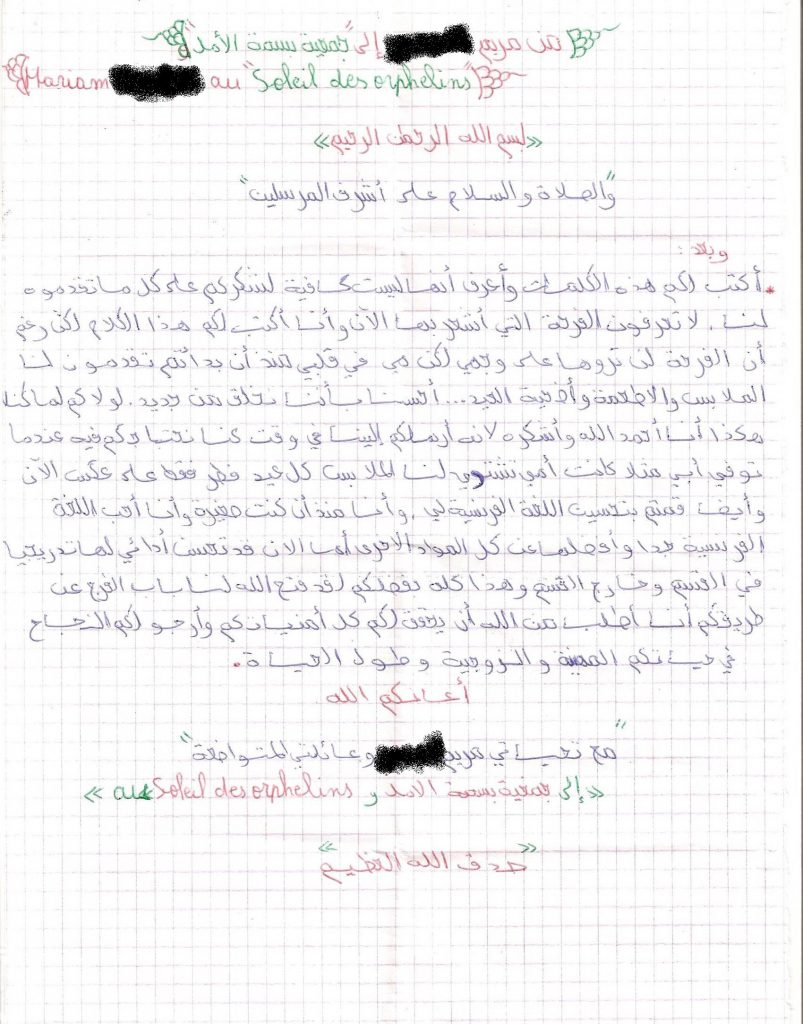 من مريم إلى "جمعية بسمة الأمل"
Mariam au "Soleil des orphelins"
«بسم الله الرحمن الرحيم»
"والصلاة والسلام على أشرف المرسلين"
وبعد :
أكتب لكم هذه الكلمات وأعرف أنها ليست كافية لشكركم على كل ما تقدموه
لنا. لا تعرفون الفرحة التي أشعر بها الآن وأنا أكتب لكم هذا الكلام لكن رغم
أن الفرحة لن تروها على وجهي لكن هي في قلبي منذ أن بدأتم تقدمون لنا
الملابس والأطعمة وأضحية العيد... أحسنا بأننا نخلق من جديد. لولاكم لما كنا
هكذا أنا أحمد الله وأشكره لانه أرسلكم إلينا في وقت كنا نحتاجكم فيه عندما
توفي أبي مثلا كانت أمي تشتري لنا الملابس كل عيد فطر فقط على عكس الآن
وأيضا قمتم بتحسين اللغة الفرنسية لي. وأنا منذ أن كنت صغيرة وأنا أحب اللغة
الفرنسية جدا وأفضلها عن كل المواد الأخرى أما الان قد تحسن أدائي لها تدريجيا
في القسم وخارج القسم وهذا كله بفضلكم لقد فتح الله لنا باب الفرج عن
طريقكم أنا أطلب من الله أن يحقق لكم كل أمنياتكم وأرجو لكم النجاح
في حياتكم المهنية والزوجية وطول الحياة.
أعانكم الله
"مع تحياتي مريم وعائلتي المتواضعة"
«إلى جمعية بسمة الامل و au Soleil des orphelins»
«صدق الله العظيم»